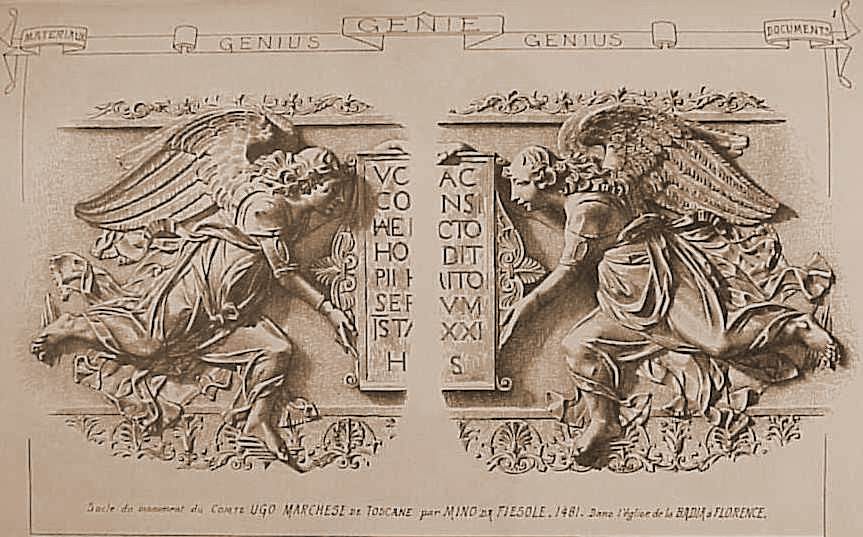 MATERIAUX
GENIUS
GENIE
GENIUS
DOCUMENTS
VC
CO
HO
PII
SER
ISTA
H
AC
NSI
CTO
DIT
ITO
VM
XXI
S
Socle du monument du Comte UGO MARCHESE DE TOSCANE par MINO DA FIESOLE. 1481. Dans l'église de la BADIA à FLORENCE.